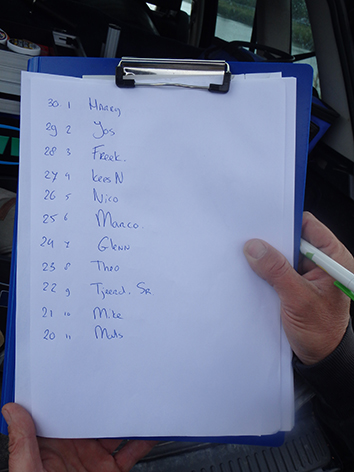 30 1 Harry
29 2 Jos
28 3 Freek.
27 4 Kees N
26 5 Nico
25 6 Marco.
24 7 Glenn
23 8 Theo
22 9 Tjeerd. Sr
21 10 Mike
20 11 Mats